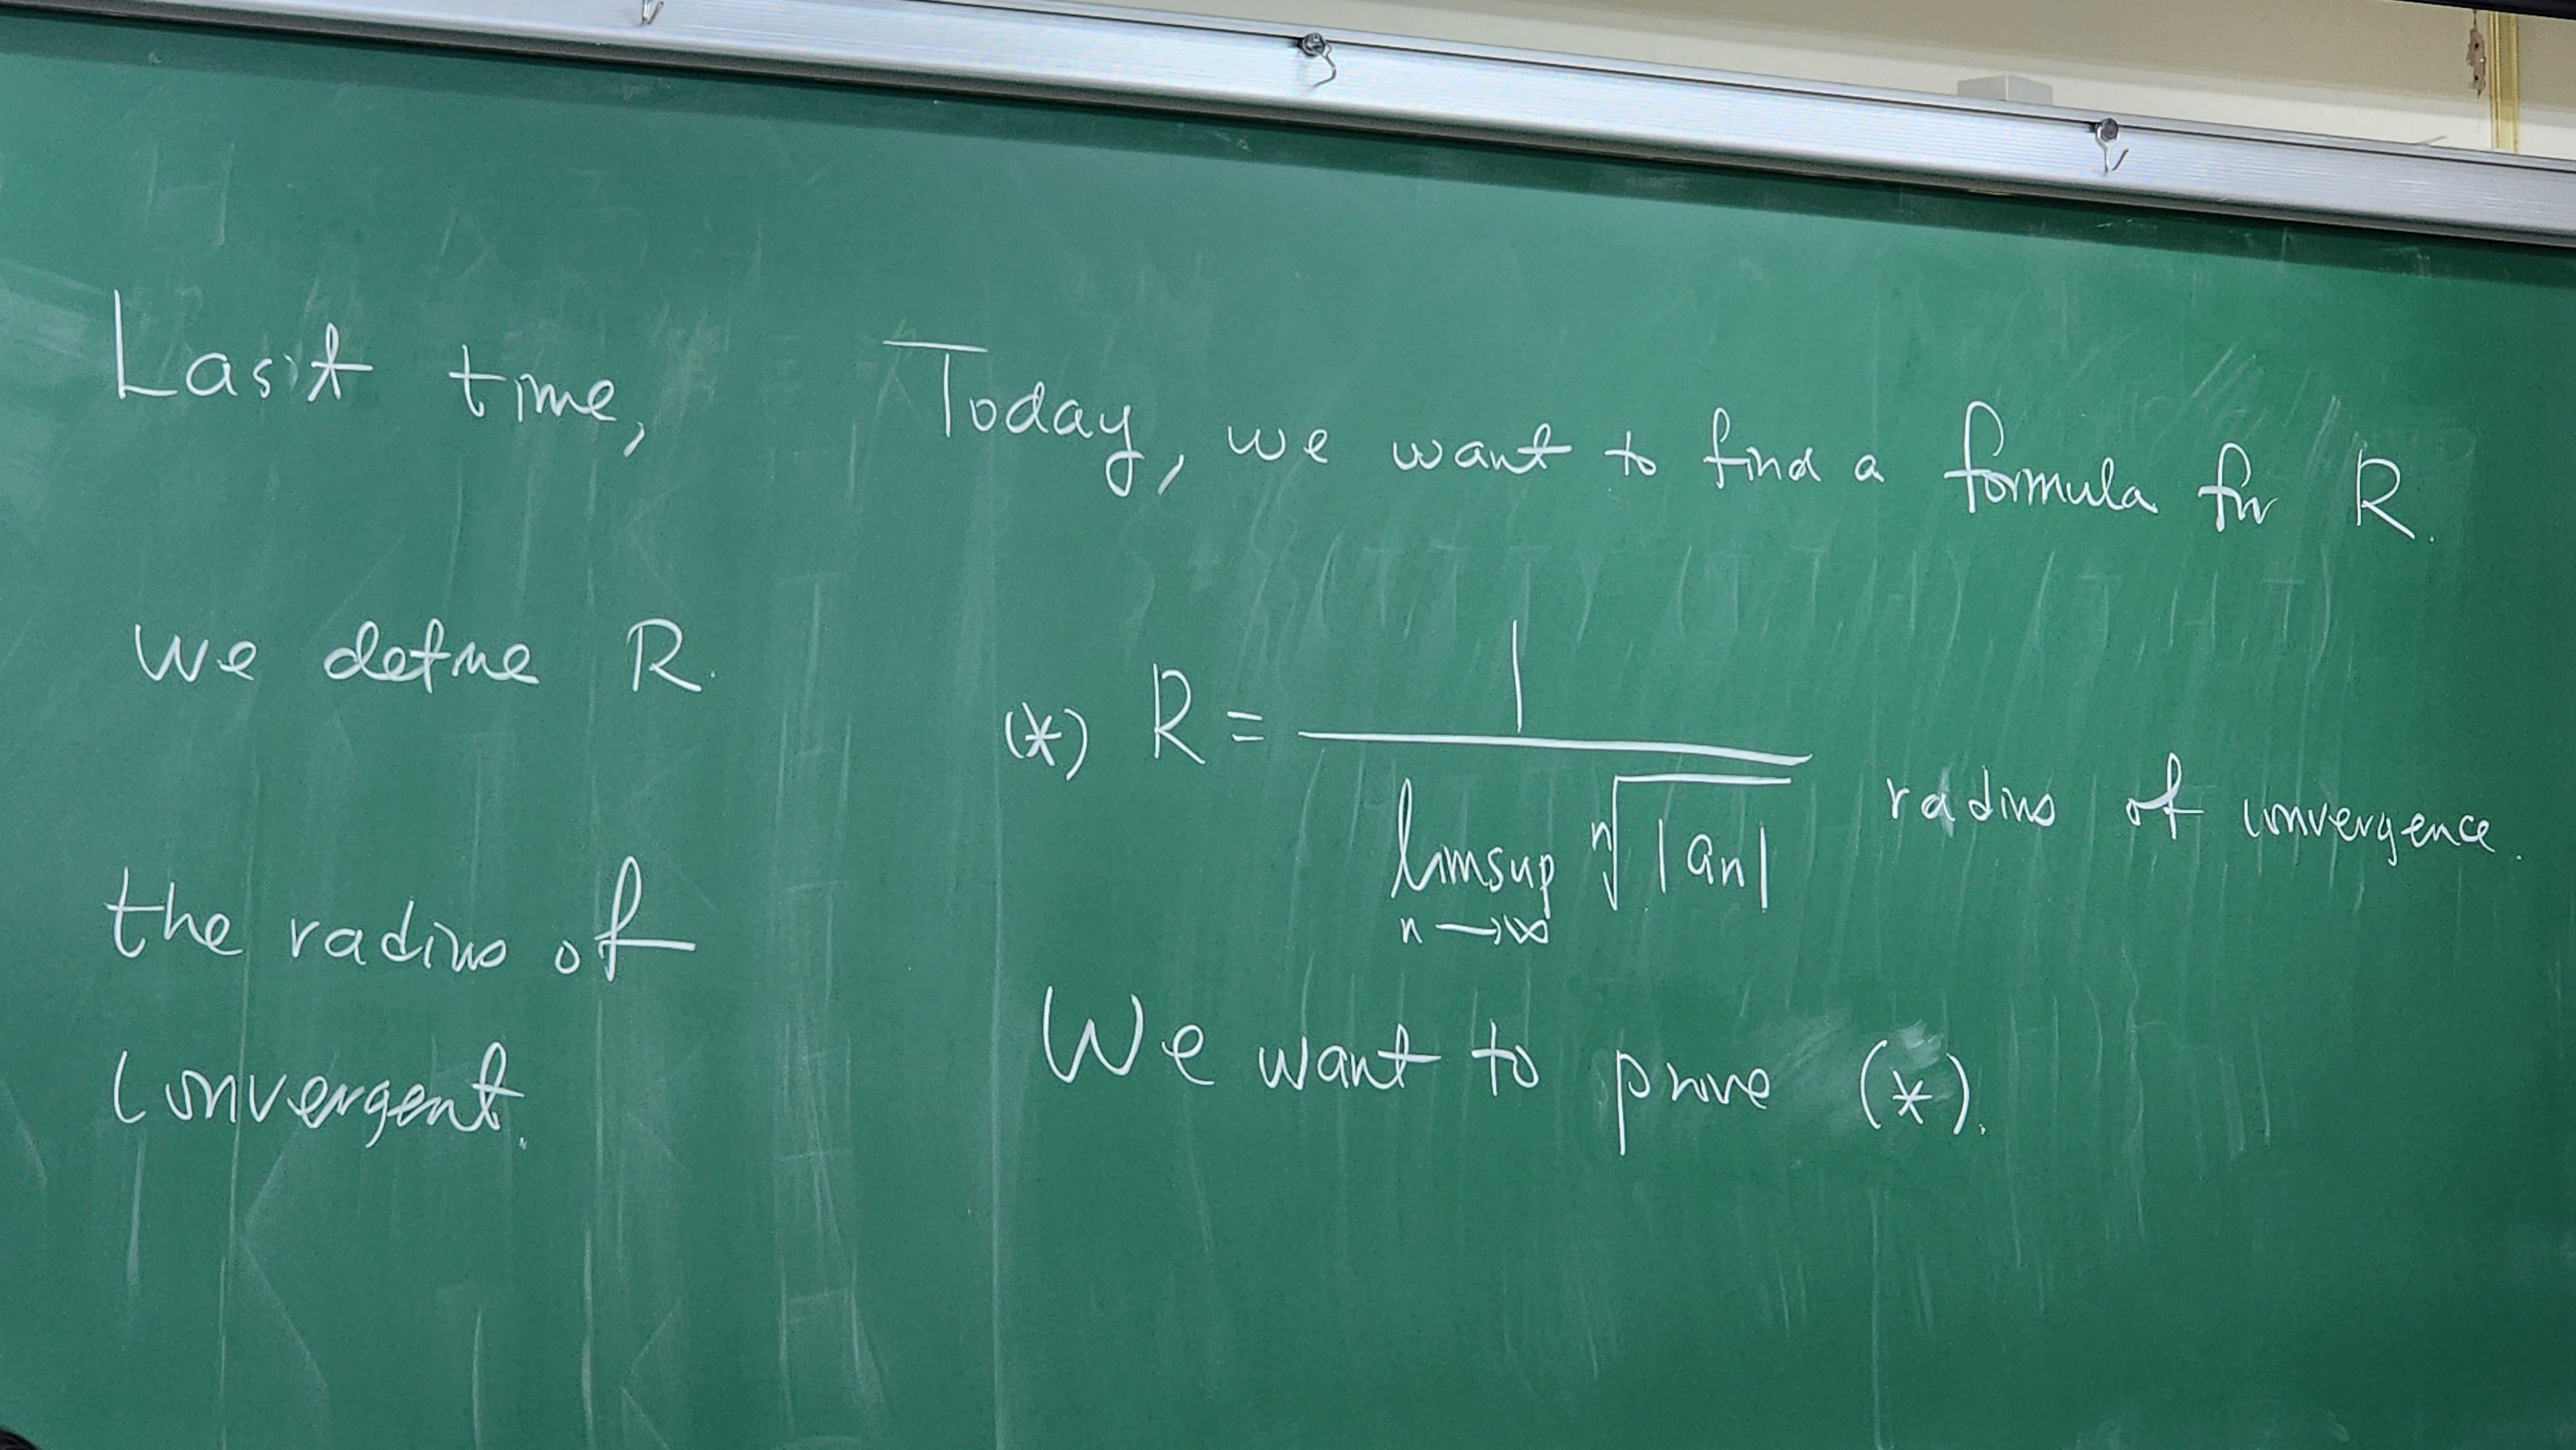 Last time,
we define R.
the radius of
convergent.
Today, we want to find a formula for R.
(*) R = 1 / limsup n→∞ ⁿ√|an| radius of convergence.
We want to prove (*).